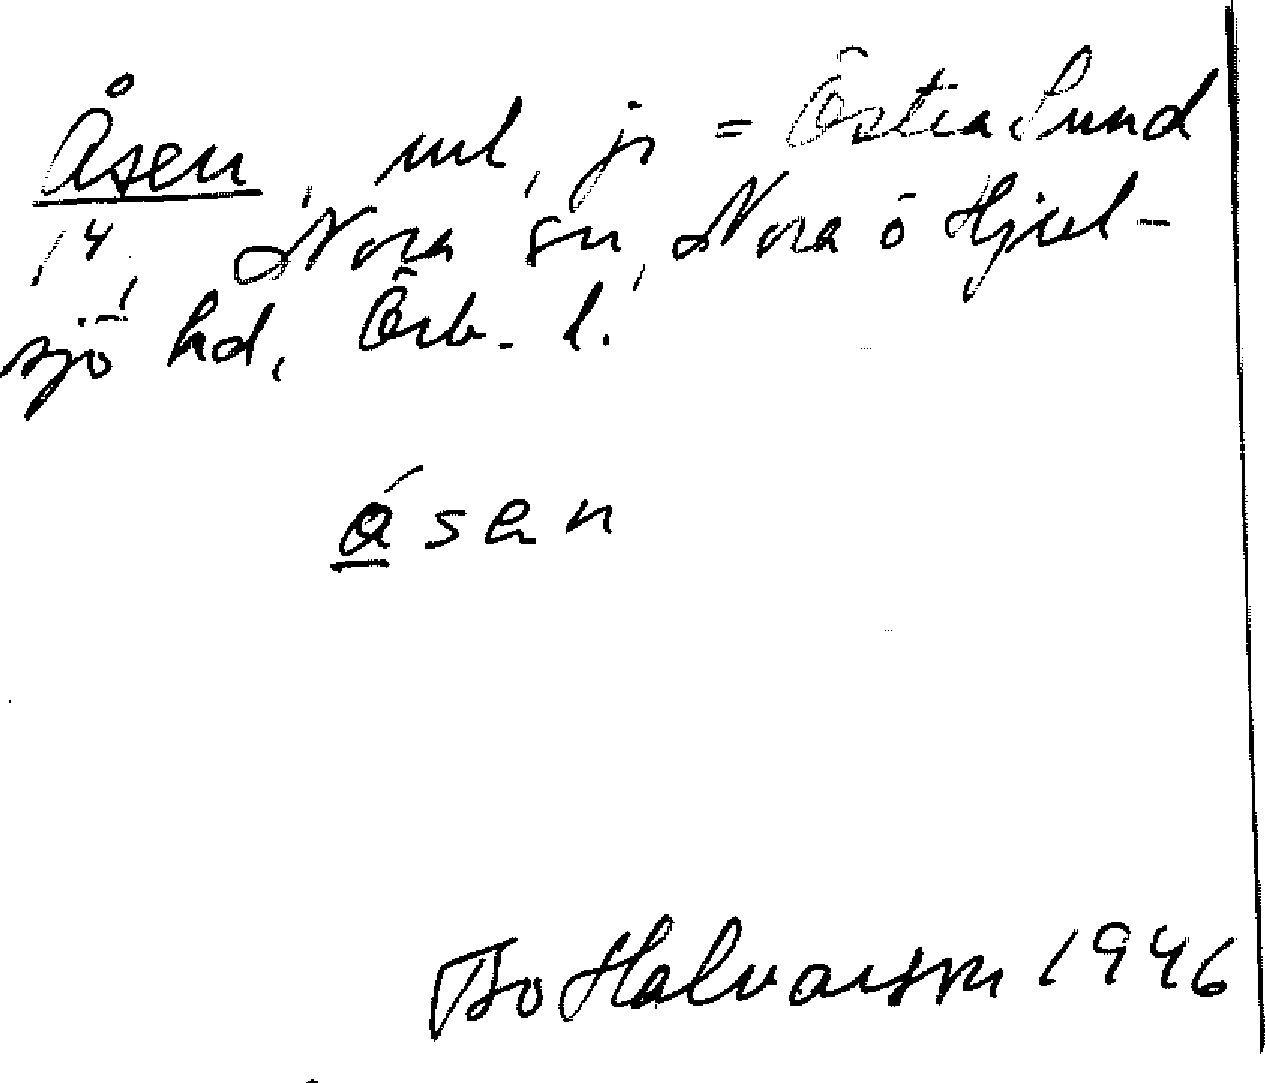 Åsen, ul, js = Östra Sund
14, Nora sn, Nora o Hjul-
sjö hd, Örb. l.
ásen
Bo Halvarsson 1946